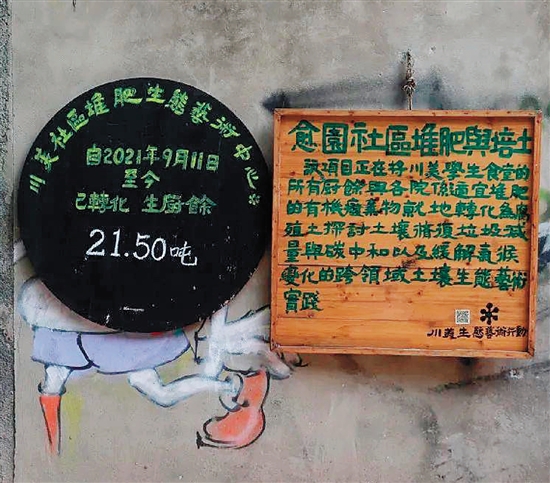 川美社區堆肥生態藝術中心
自2021年9月11日
至今
已轉化 生厨餘
21.50吨
愈園社區堆肥與培土
該項目正在将川美學生食堂的
所有厨餘與各院係適宜堆肥
的有機廢棄物就地轉化為腐
殖土探討土壤脩復垃圾减
量與碳中和以及緩解氣候
變化的跨領域土壤生態藝術
實踐
川美生態藝術行動